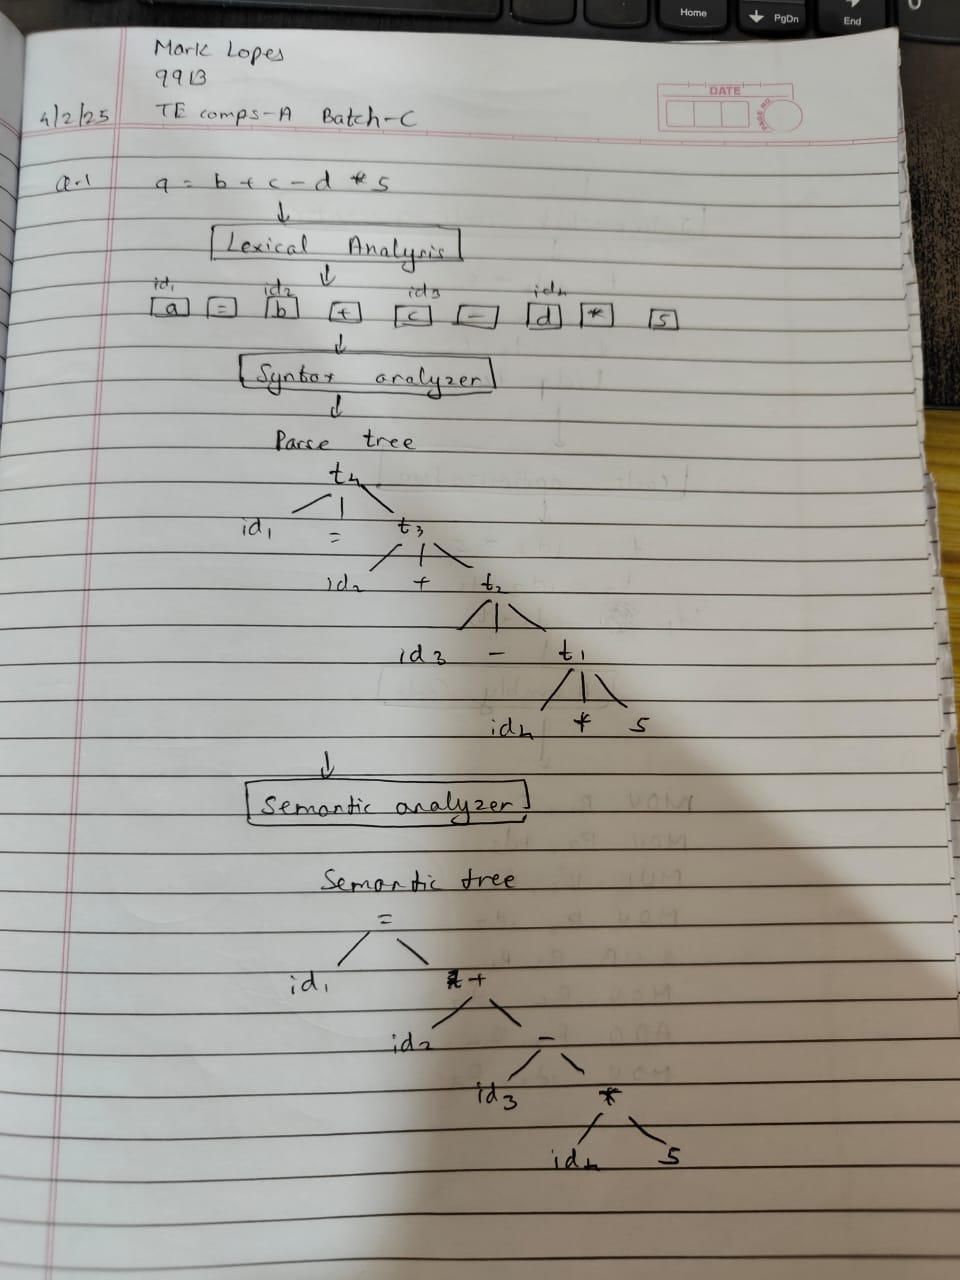 Home
PgDn
End
Mark Lopes
9913
4/2/25 TE comps-A Batch-C
DATE
PAGE NO.
Q.1 a = b + c - d * 5
↓
Lexical Analysis
↓
id₁ id₂ id₃ id₄
a = b + c - d * 5
↓
Syntax analyzer
↓
Parse tree
t₄
id₁ = t₃
id₂ + t₂
id₃ - t₁
id₄ * 5
↓
Semantic analyzer
Semantic tree
=
id₁ +
id₂ -
id₃ *
id₄ 5